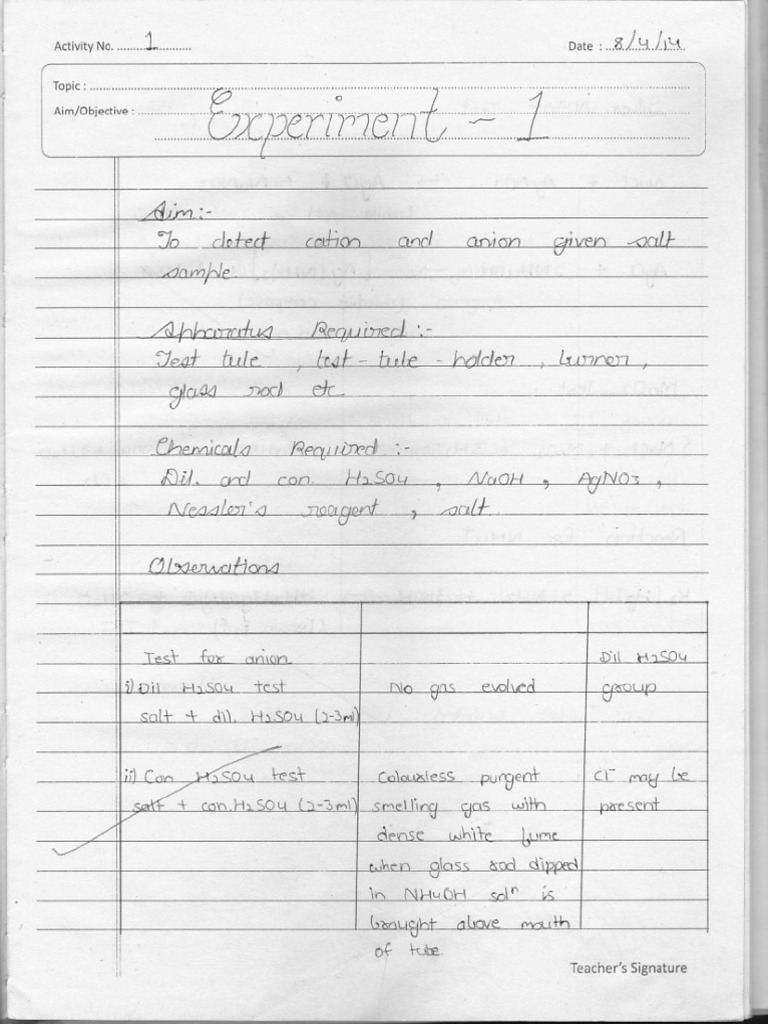 Activity No. 1
Date : 8/4/14
Topic :
Aim/Objective :
Experiment - 1
Aim:-
To detect cation and anion given salt
sample.
Apparatus Required :-
Test tube , test-tube-holder , burner ,
glass rod etc
Chemicals Required :-
Dil. and con. H2SO4 , NaOH , AgNO3 ,
Nessler's reagent , salt
Observations
Test for anion
i) Dil H2SO4 test
salt + dil. H2SO4 (2-3ml)
No gas evolved
Dil H2SO4
group
ii) Con H2SO4 test
salt + con.H2SO4 (2-3ml)
Colourless pungent
smelling gas with
dense white fume
when glass rod dipped
in NH4OH solⁿ is
brought above mouth
of tube
Cl⁻ may be
present
Teacher's Signature